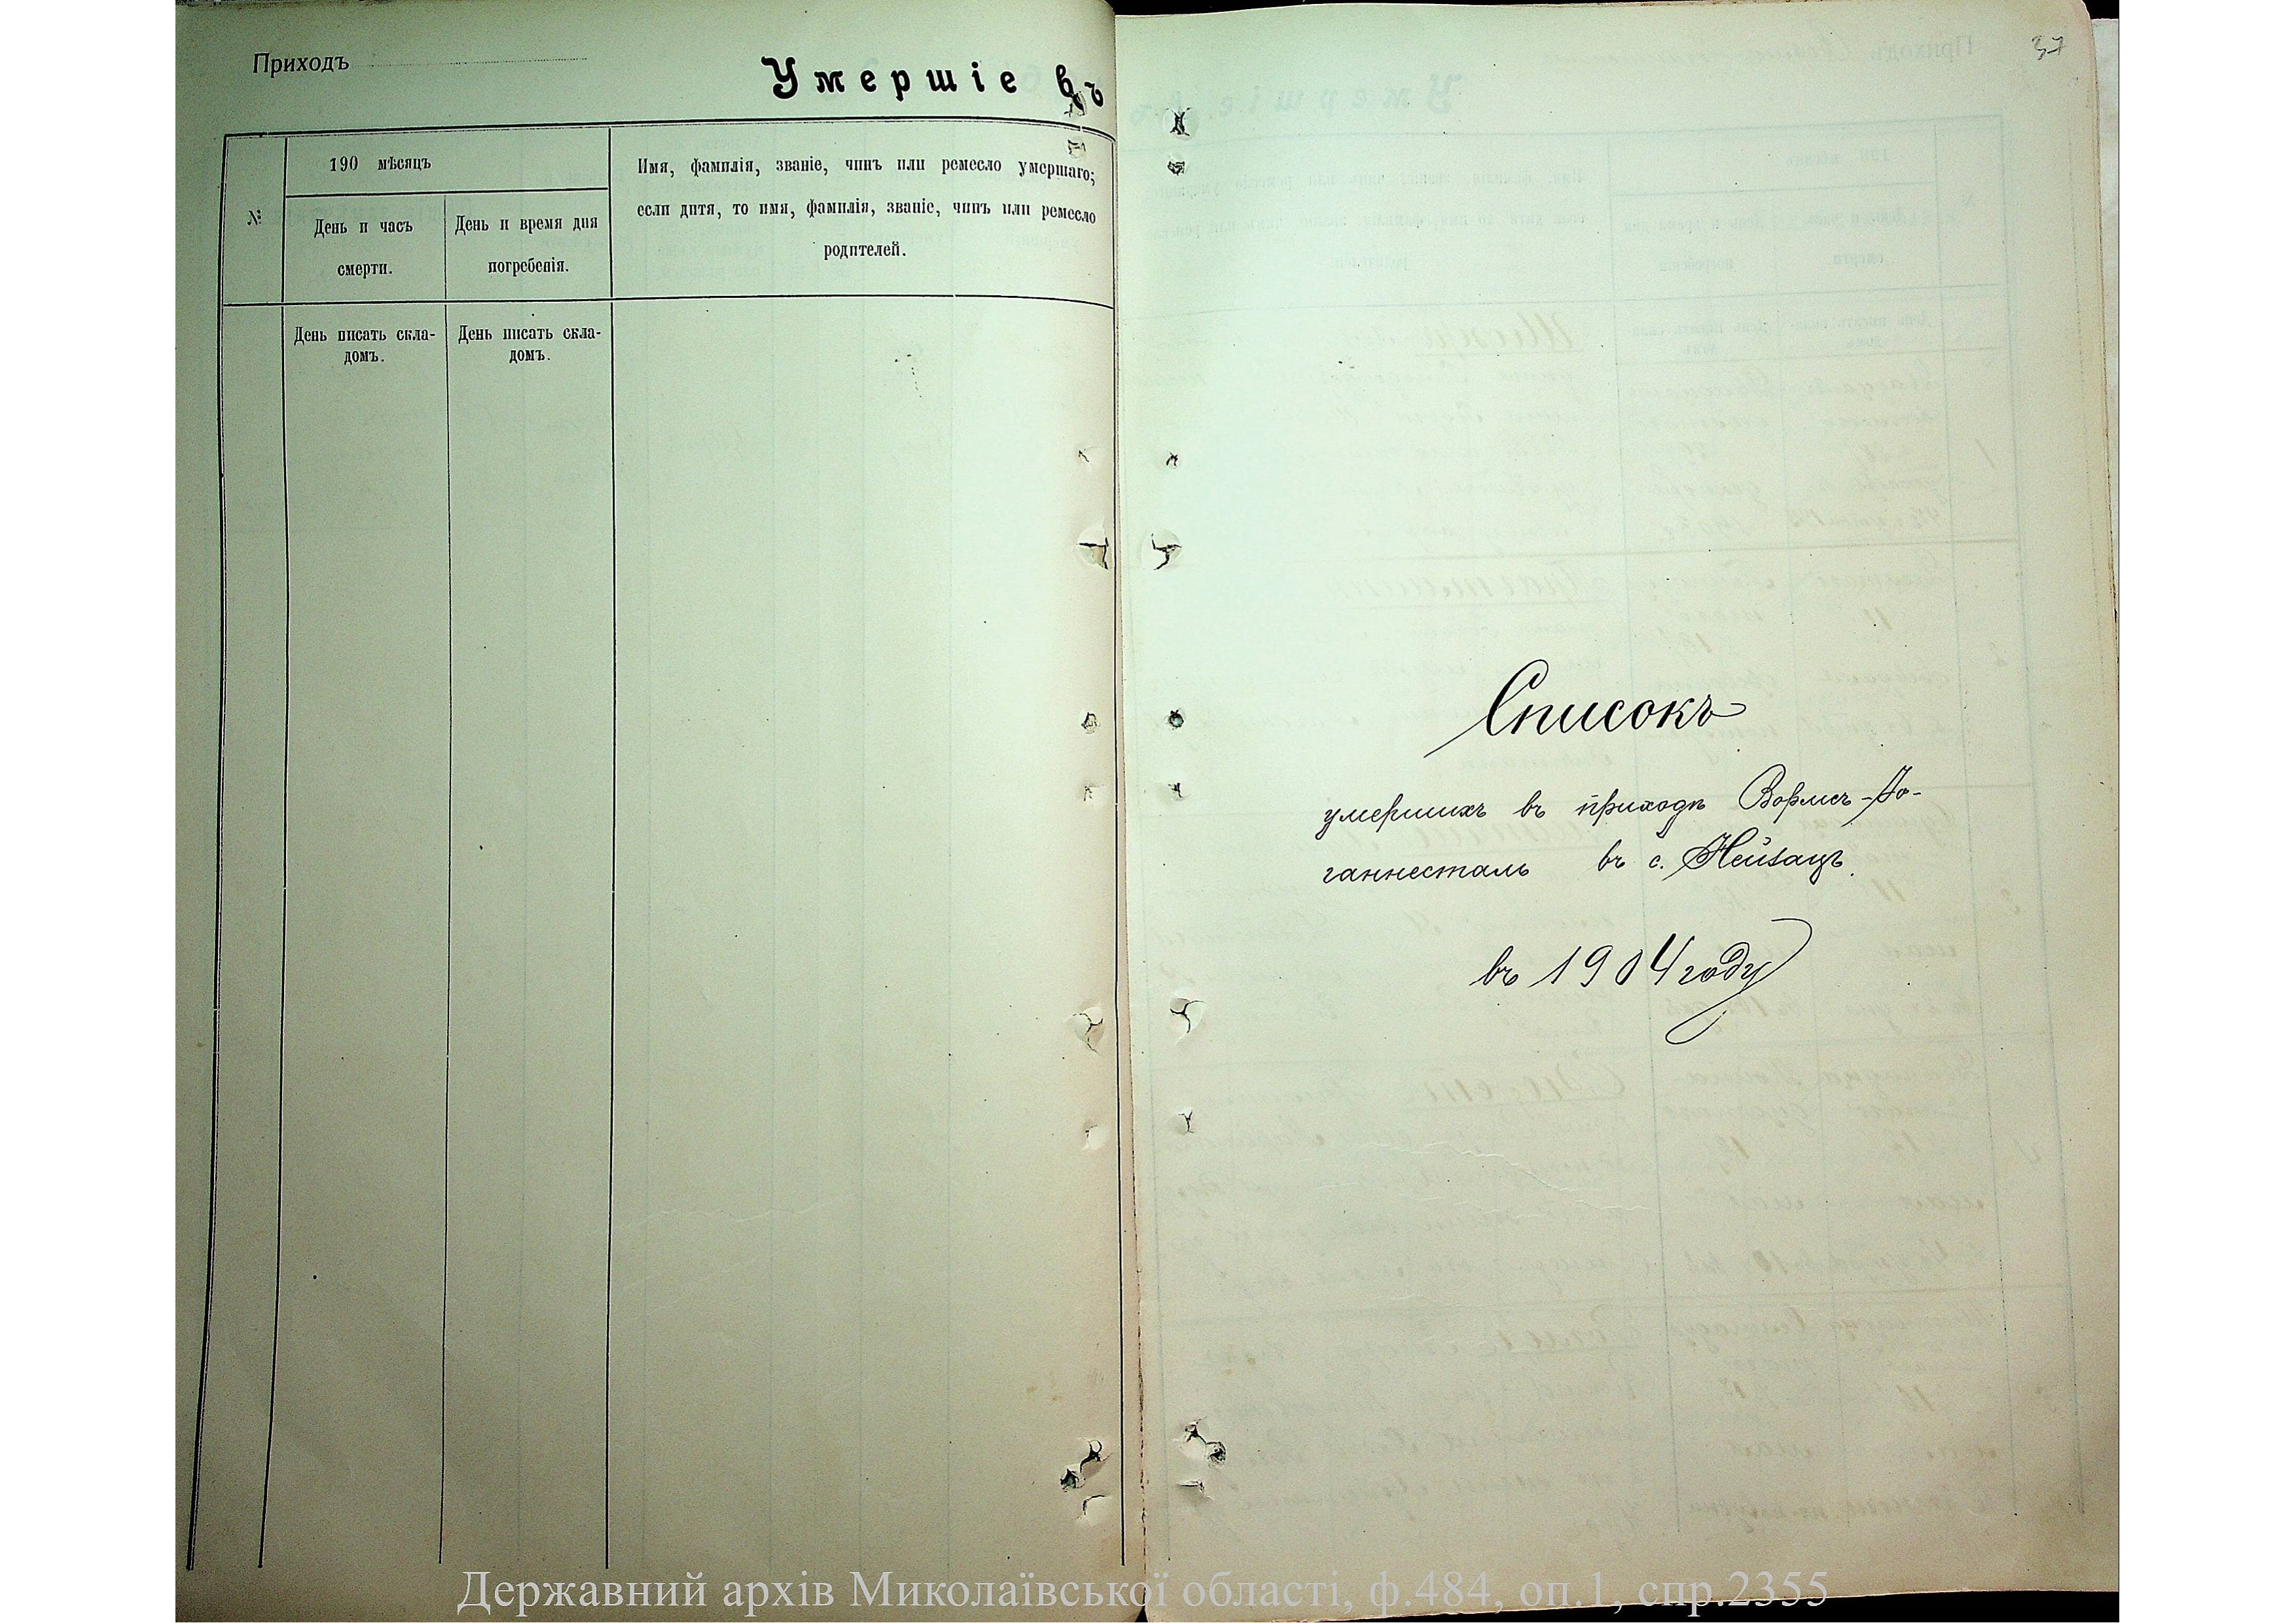 Приходъ
Умершіе въ
№
190 мѣсяцъ
День и часъ
смерти.
День и время дня
погребенія.
Имя, фамилія, званіе, чинъ или ремесло умершаго;
если дитя, то имя, фамилія, званіе, чинъ или ремесло
родителей.
День писать скла-
домъ.
День писать скла-
домъ.
37
Списокъ
умершихъ въ приходѣ Вормсъ-Іо-
ганнесталь въ с. Нейзацъ.
въ 1904 году
Державний архів Миколаївської області, ф.484, оп.1, спр.2355